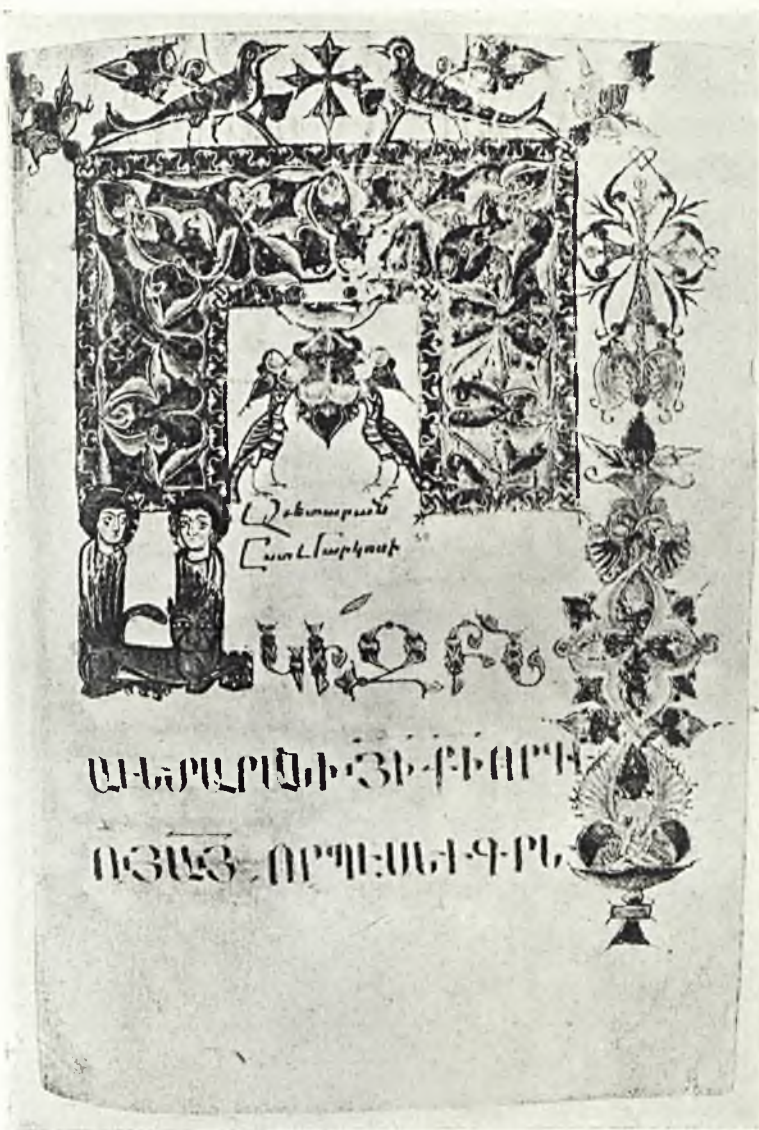 Աւետարան
Ըստ Մարկոսի
ՍԿԻԶԲՆ
ԱՒԵՏԱՐԱՆԻ ՅԻ ՔԻ ՈՐԴՒ
ՈՅ ԱՅ. ՈՐՊԷՍ ԵՒ ԳՐԵ